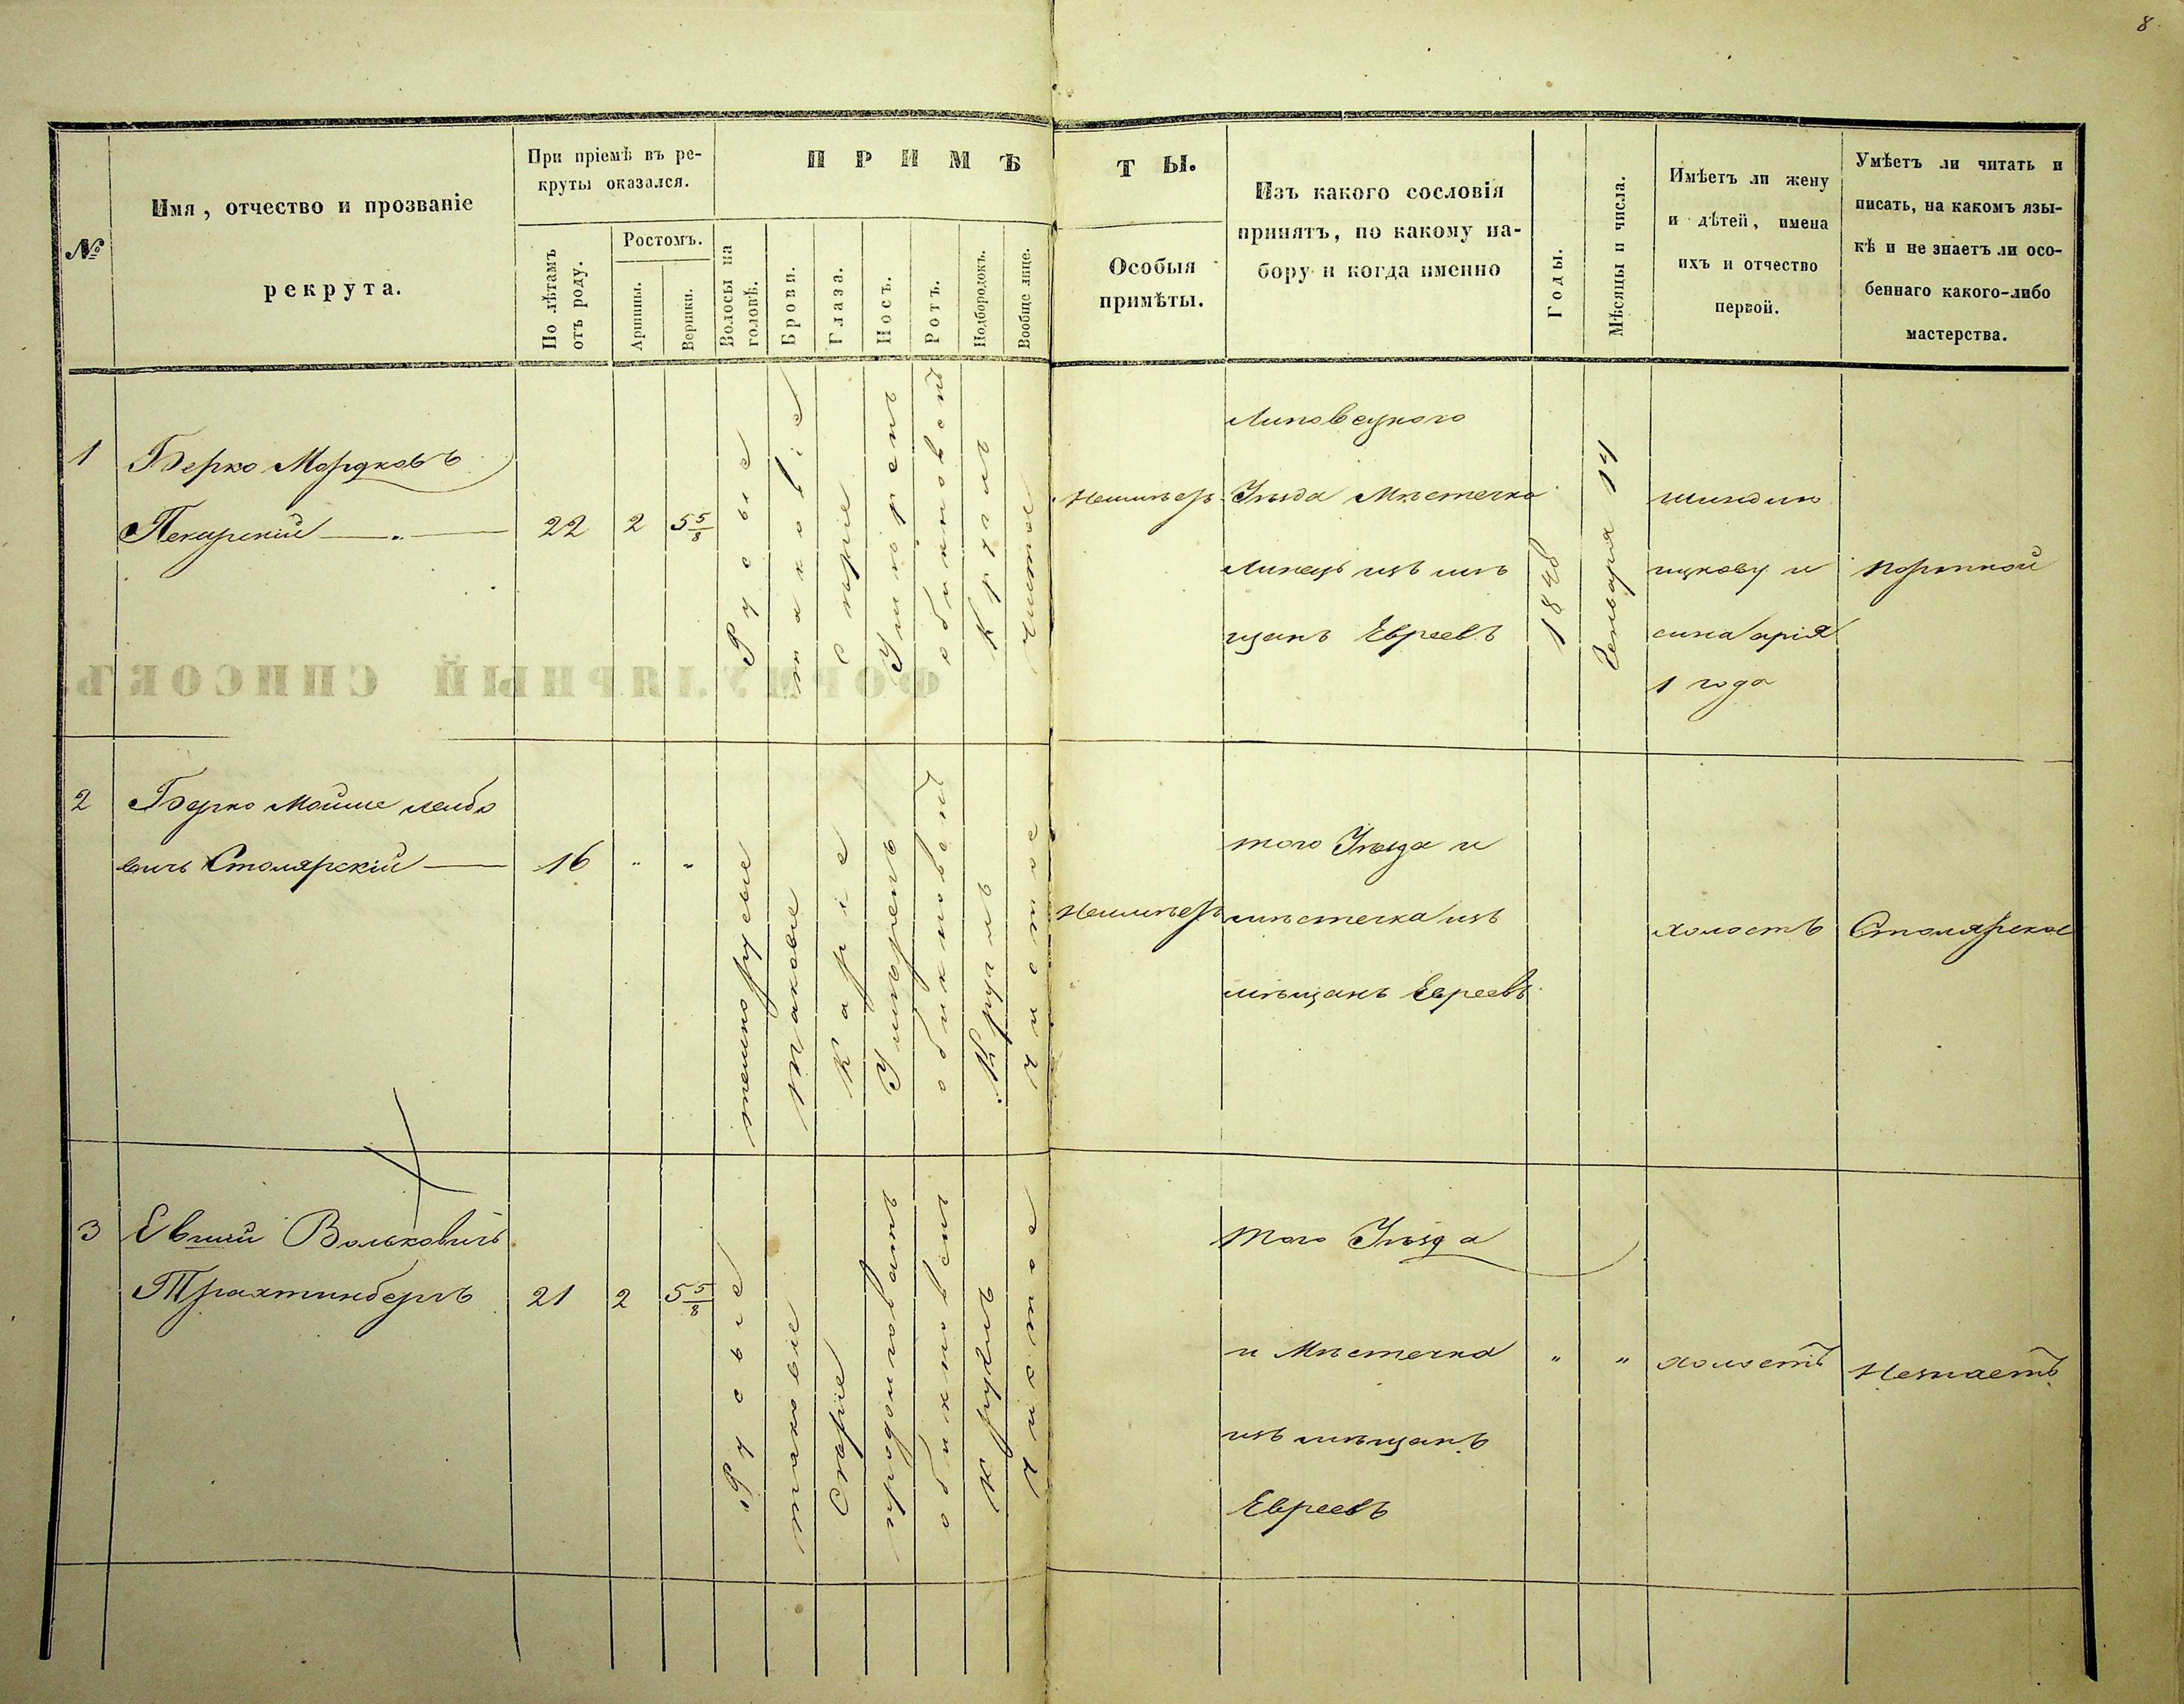 8
№
Имя, отчество и прозваніе
рекрута.
При пріемѣ въ ре-
круты оказался.
По лѣтамъ
отъ роду.
Ростомъ.
Аршины.
Вершки.
ПРИМѢ
ТЫ.
Волосы на
головѣ.
Брови.
Глаза.
Носъ.
Ротъ.
Подбородокъ.
Вообще лице.
Особыя
примѣты.
Изъ какого сословія
принятъ, по какому на-
бору и когда именно
Годы.
Мѣсяцы и числа.
Имѣетъ ли жену
и дѣтей, имена
ихъ и отчество
первой.
Умѣетъ ли читать и
писать, на какомъ язы-
кѣ и не знаетъ ли осо-
беннаго какого-либо
мастерства.
1
Берко Мордковъ
Пекарскій
22
2
5 5/8
Русые
таковіе
с каріе
Умѣренъ
обикновенъ
Круглъ
Чистое
Неимѣетъ
Липовецкого
Уѣзда Мѣстечка
Линецъ изъ мѣ
щанъ Евреевъ
1848
Генваря 14
ицкову и
сина арія
1 года
портной
ФОРМУЛЯРНЫЙ СПИСОКЪ
2
Берко Мойше лейбо
вичъ Столярскій
16
"
"
темнорусые
Таковіе
Каріе
Умѣренъ
обикновенъ
Круглъ
Чистое
Неимѣетъ
того Уѣзда и
мѣстечка изъ
мѣщанъ Евреевъ
холостъ
Столярское
3
Волковичъ
Трахтинбергъ
21
2
5 5/8
Русыіе
таковіе
Скаріе
продолговатъ
обикновенъ
Круглъ
Чистое
того Уѣзда
и Мѣстечка
изъ мѣщанъ
Евреевъ
"
"
холостъ
Незнаетъ